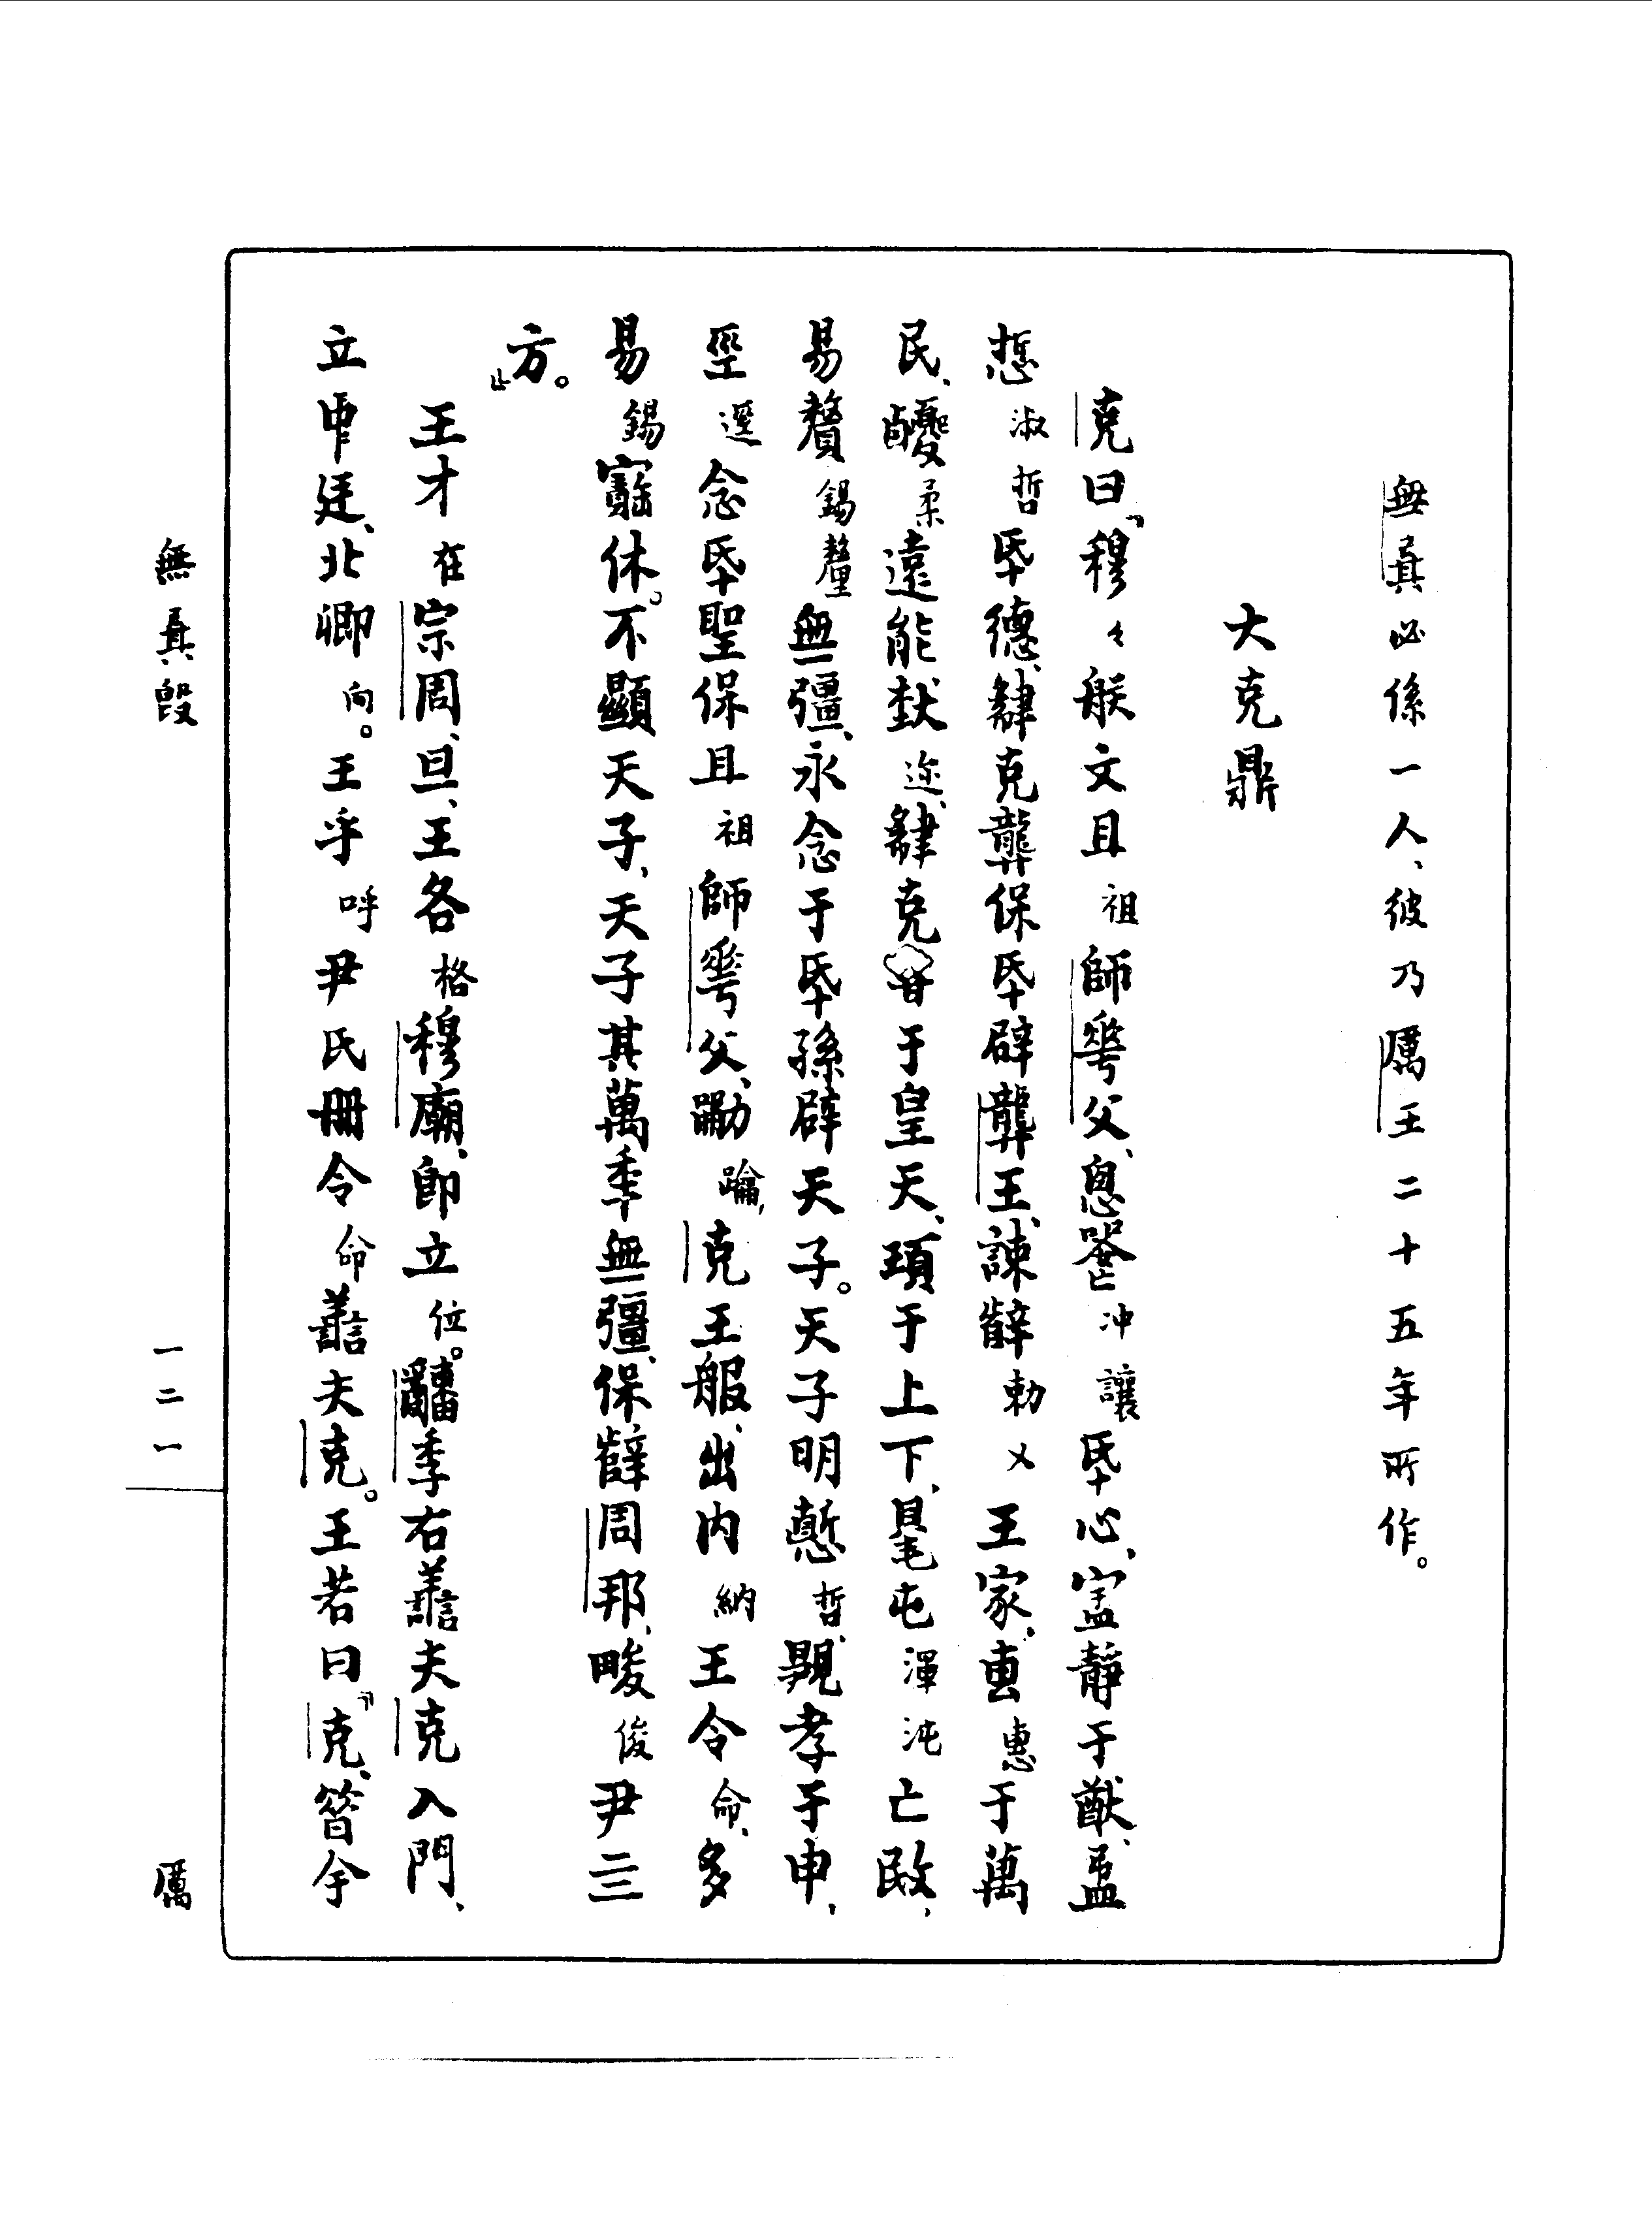 無㠱必係一人、彼乃厲王二十五年所作。
大克鼎
克曰『穆々朕文且祖師華父、悤㐮冲讓氒心、寍靜于猷、盄
悊淑哲氒德、肆克龏保氒辟龏王、諫辥勅乂王家、叀惠于萬
民、柔遠能埶迩、肆克于皇天、頊于上下、屯渾沌亡敃、
易贅錫釐無彊、永念于氒孫辟天子。天子明悊哲、孝于申、
巠逕念氒聖保且祖師華父、踚、克王服、出内納王令命、多
易錫寶休。不顯天子、天子其萬年無彊、保辥周邦、畯俊尹三
方。』
王才在宗周、旦、王各格穆廟、即立位。季右譱夫克入門、
立中廷、北卿向。王乎呼尹氏册令命譱夫克。王若曰『克、昔余
無㠱𣪘
一二一
厲